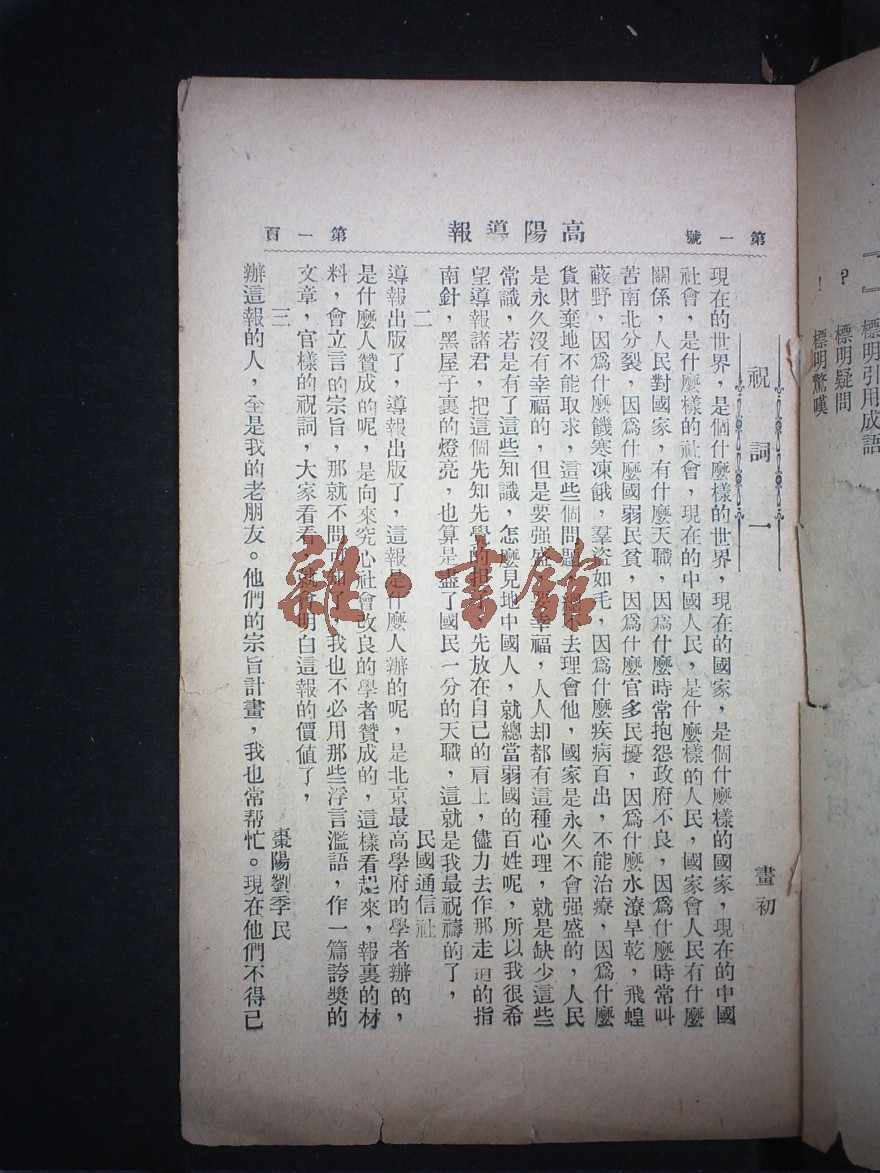 『』標明引用成語
? 標明疑問
! 標明驚嘆
第一號
高陽導報
第一百
祝詞 一
畫初
現在的世界，是個什麼樣的世界，現在的國家，是個什麼樣的國家，現在的中國
社會，是什麼樣的社會，現在的中國人民，是什麼樣的人民，國家會人民有什麼
關係，人民對國家，有什麼天職，因爲什麼時常抱怨政府不良，因爲什麼時常叫
苦南北分裂，因爲什麼國弱民貧，因爲什麼官多民擾，因爲什麼水潦旱乾，飛蝗
蔽野，因爲什麼饑寒凍餓，羣盜如毛，因爲什麼疾病百出，不能治療，因爲什麼
貨財棄地不能取求，這些個問題，總不去理會他，國家是永久不會强盛的，人民
是永久沒有幸福的，但是要强盛，要幸福，人人却都有這種心理，就是缺少這些
常識，若是有了這些知識，怎麼見地中國人，就總當弱國的百姓呢，所以我很希
望導報諸君，把這個先知先學的担子，先放在自己的肩上，儘力去作那走道的指
南針，黑屋子裏的燈亮，也算是盡了國民一分的天職，這就是我最祝禱的了，
二
民國通信社
導報出版了，導報出版了，這報是什麼人辦的呢，是北京最高學府的學者辦的，
是什麼人贊成的呢，是向來究心社會改良的學者贊成的，這樣看起來，報裏的材
料，會立言的宗旨，那就不問可知了，我也不必用那些浮言濫語，作一篇誇獎的
文章，官樣的祝詞，大家看看，就會明白這報的價値了，
三
棗陽劉季民
辦這報的人，全是我的老朋友。他們的宗旨計畫，我也常帮忙。現在他們不得已
雜·書館